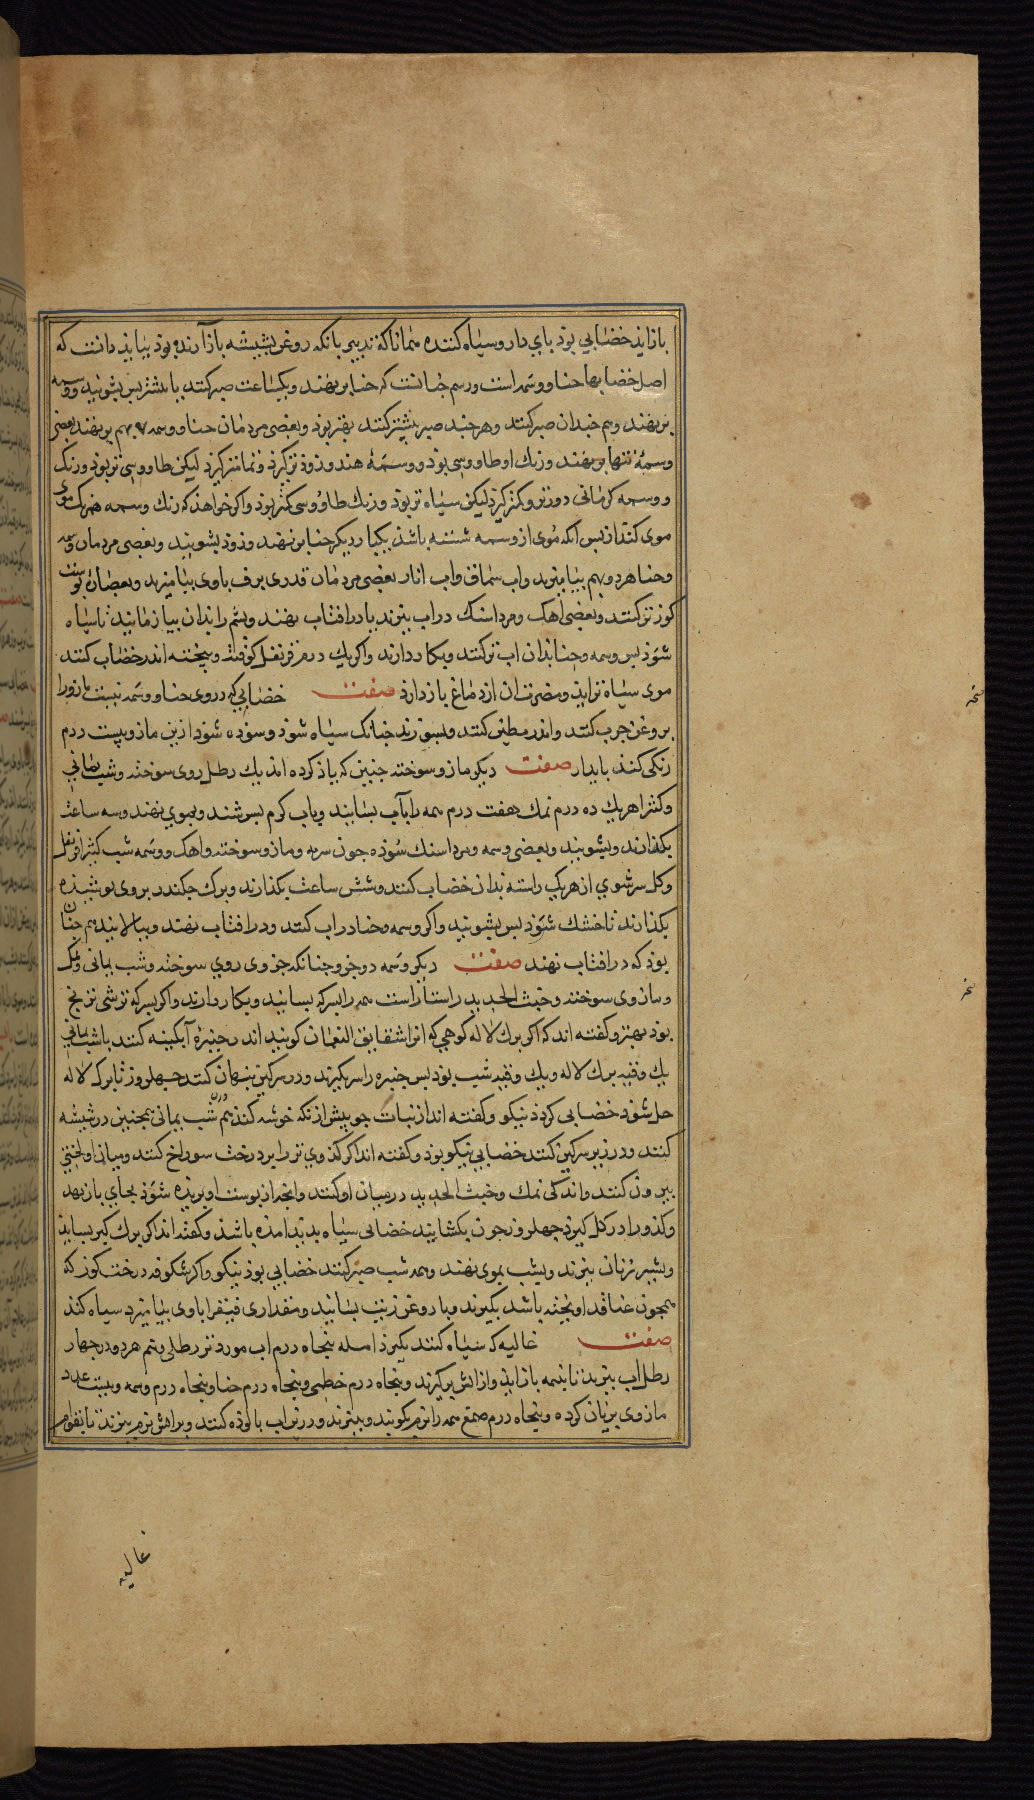 باز اید خضابی بوذ بای دار و سیاه کننده همانا که تدبیر بانکه روغن بشیشه باز آرند بوذ بباید دانست که
اصل خضابها حنا و وسمه است و رسم جنانست که حنا بر نهند و یکساعت صبر کنند یا بیشتر بس بشویند و وسمه
بر نهند و هم جندان صبر کنند و هر جند صبر بیشتر کنند بهتر بوذ و بعضی مردمان حنا و وسمه بهم بر نهند بعضی
وسمه تنها بر نهند و رنک او طاووسی بود و وسمهٔ هندو زوذتر کیرذ و تمامتر کیرذ لیکن طاووسی تر بوذ و رنک
و وسمه کرمانی دورتر و کمتر کیرد لیکن سیاه تر بوذ و رنک طاوسی کمتر بوذ و اکر خواهذ که رنک وسمه همرنک موی
موی کند از بس انکه موی از وسمه شسته باشذ یکبار دیکر حنا بر نهند و زوذ بشویند و بعضی مردمان وسمه
و حنا هر دو بهم بیامیزند و اب سماق و اب انار بعضی مردمان قدری برف با وی بیامیزند و بعضی اب بوست
کوز تر کنند و بعضی اهک و مرداسنک در اب بپزند یا در افتاب نهند و بشم را بدان بیازمایند تا سیاه
شوذ بس وسمه و حنا بذان اب تر کنند و بکار دارند و اکر یک درم قرنفل کوفته و بیخته اندر خضاب کنند
موی سیاه تر ایذ و مضرت ان از دماغ باز دارذ صفت خضابی که در وی حنا و وسمه نیست مازو را
بروغن جرب کنند و اندر مطین کنند و بسوزند جنانک سیاه شوذ و سوده شوذ ازین مازو بیست درم
رنکی کند بایدار صفت دیکر مازو سوخته جنین که یاذ کرده اند یک رطل روی سوخته و شب یمانی
و کثیرا هر یک ده درم نمک هفت درم همه را بآب بسایند و باب کرم بسرشند و بموی نهند و سه ساعت
بکذارند و بشویند و بعضی وسمه و مرداسنک سوذه جون سرمه و مازو سوخته و اهک و وسمه شب کثیرا قرنفل
و کل سرشوی از هر یک راسته بدان خضاب کنند و شش ساعت بکذارند و برک جکندر بر وی بوشیذه
بکذارند تا خشک شوذ بس بشویند و اکر وسمه و حنا در اب کنند و در افتاب نهند و ببالایند هم جنان
بوذ که در افتاب نهند صفت دیکر وسمه دو جزو حنا نکه جزوی روی سوخته و شب یمانی و نمک
و مازوی سوخته و خبث الحدید راستاراست همه را بسرکه بسایند و بکار دارند و اکر بسرکه ترشی ترنج
بوذ بهتر و کفته اند که اکر برک لاله کوهی که انرا شقایق النعمان کویند اندر خنبره آبکینه کنند با شب یمانی
یک وقیه برک لاله و یک وقیه شب بوذ بس خنبره را سر بکیرند و در سرکین بنهان کنند جهل روز تا برک لاله
حل شوذ خضابی کردذ نیکو و کفته اند از نبات جو بیش از انکه خوشه کند هم وزن شب یمانی همجنین در شیشه
کنند و در زیر سرکین کنند خضابی نیکو بوذ و کفته اند اکر کذوی تر را بر درخت سوراخ کنند و میان او لختی
بیرون کنند و اندکی نمک و خبث الحدید در میان او کنند و انجه از بوست او بریذه شوذ بجای باز نهند
و کذو را در کل کیرند جهل روز جون بکشایند خضابی سیاه بدید امذه باشذ و کفته اند اکر برک کبر بساید
و بشیر زنان بپزند و بشب بموی نهند و همه شب صبر کنند خضابی بوذ نیکو و اکر شکوفه درخت کوز که
همجون عناقید اویخته باشد بکیرند و با روغن زیت بسایند و مقداری قیفر با وی بیامیزد سیاه کند
صفت غالیه که سیاه کند بکیرذ امله بنجاه درم اب مورد تر رطلی و نیم هر دو در جهار
رطل اب بپزند تا بنیمه باز ایذ و از اتش بر کیرند و بنجاه درم خطمی و بنجاه درم حنا و بنجاه درم وسمه و بیست عدد
مازوی بریان کرده و بنجاه درم صمغ همه را نرم بکوبند و ببیزند و درین اب بالوذه کنند و بر اتش نرم بپزند تا بقوام
غالیه